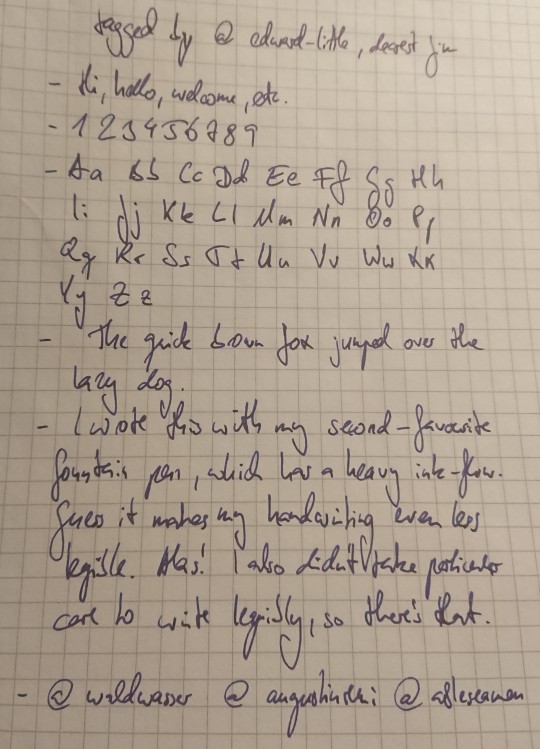 tagged by @ edward-little, dearest jim
- Hi, hello, welcome, etc.
- 1 2 3 4 5 6 7 8 9
- Aa Bb Cc Dd Ee Ff Gg Hh
Ii Jj Kk Ll Mm Nn Oo Pp
Qq Rr Ss Tt Uu Vv Ww Xx
Yy Zz
- The quick brown fox jumped over the
lazy dog.
- I wrote this with my second-favourite
fountain pen, which has a heavy ink-flow.
Guess it makes my handwriting even less
legible. Alas! I also didn't take particular
care to write legibly, so there's that.
- @ waldwasser @